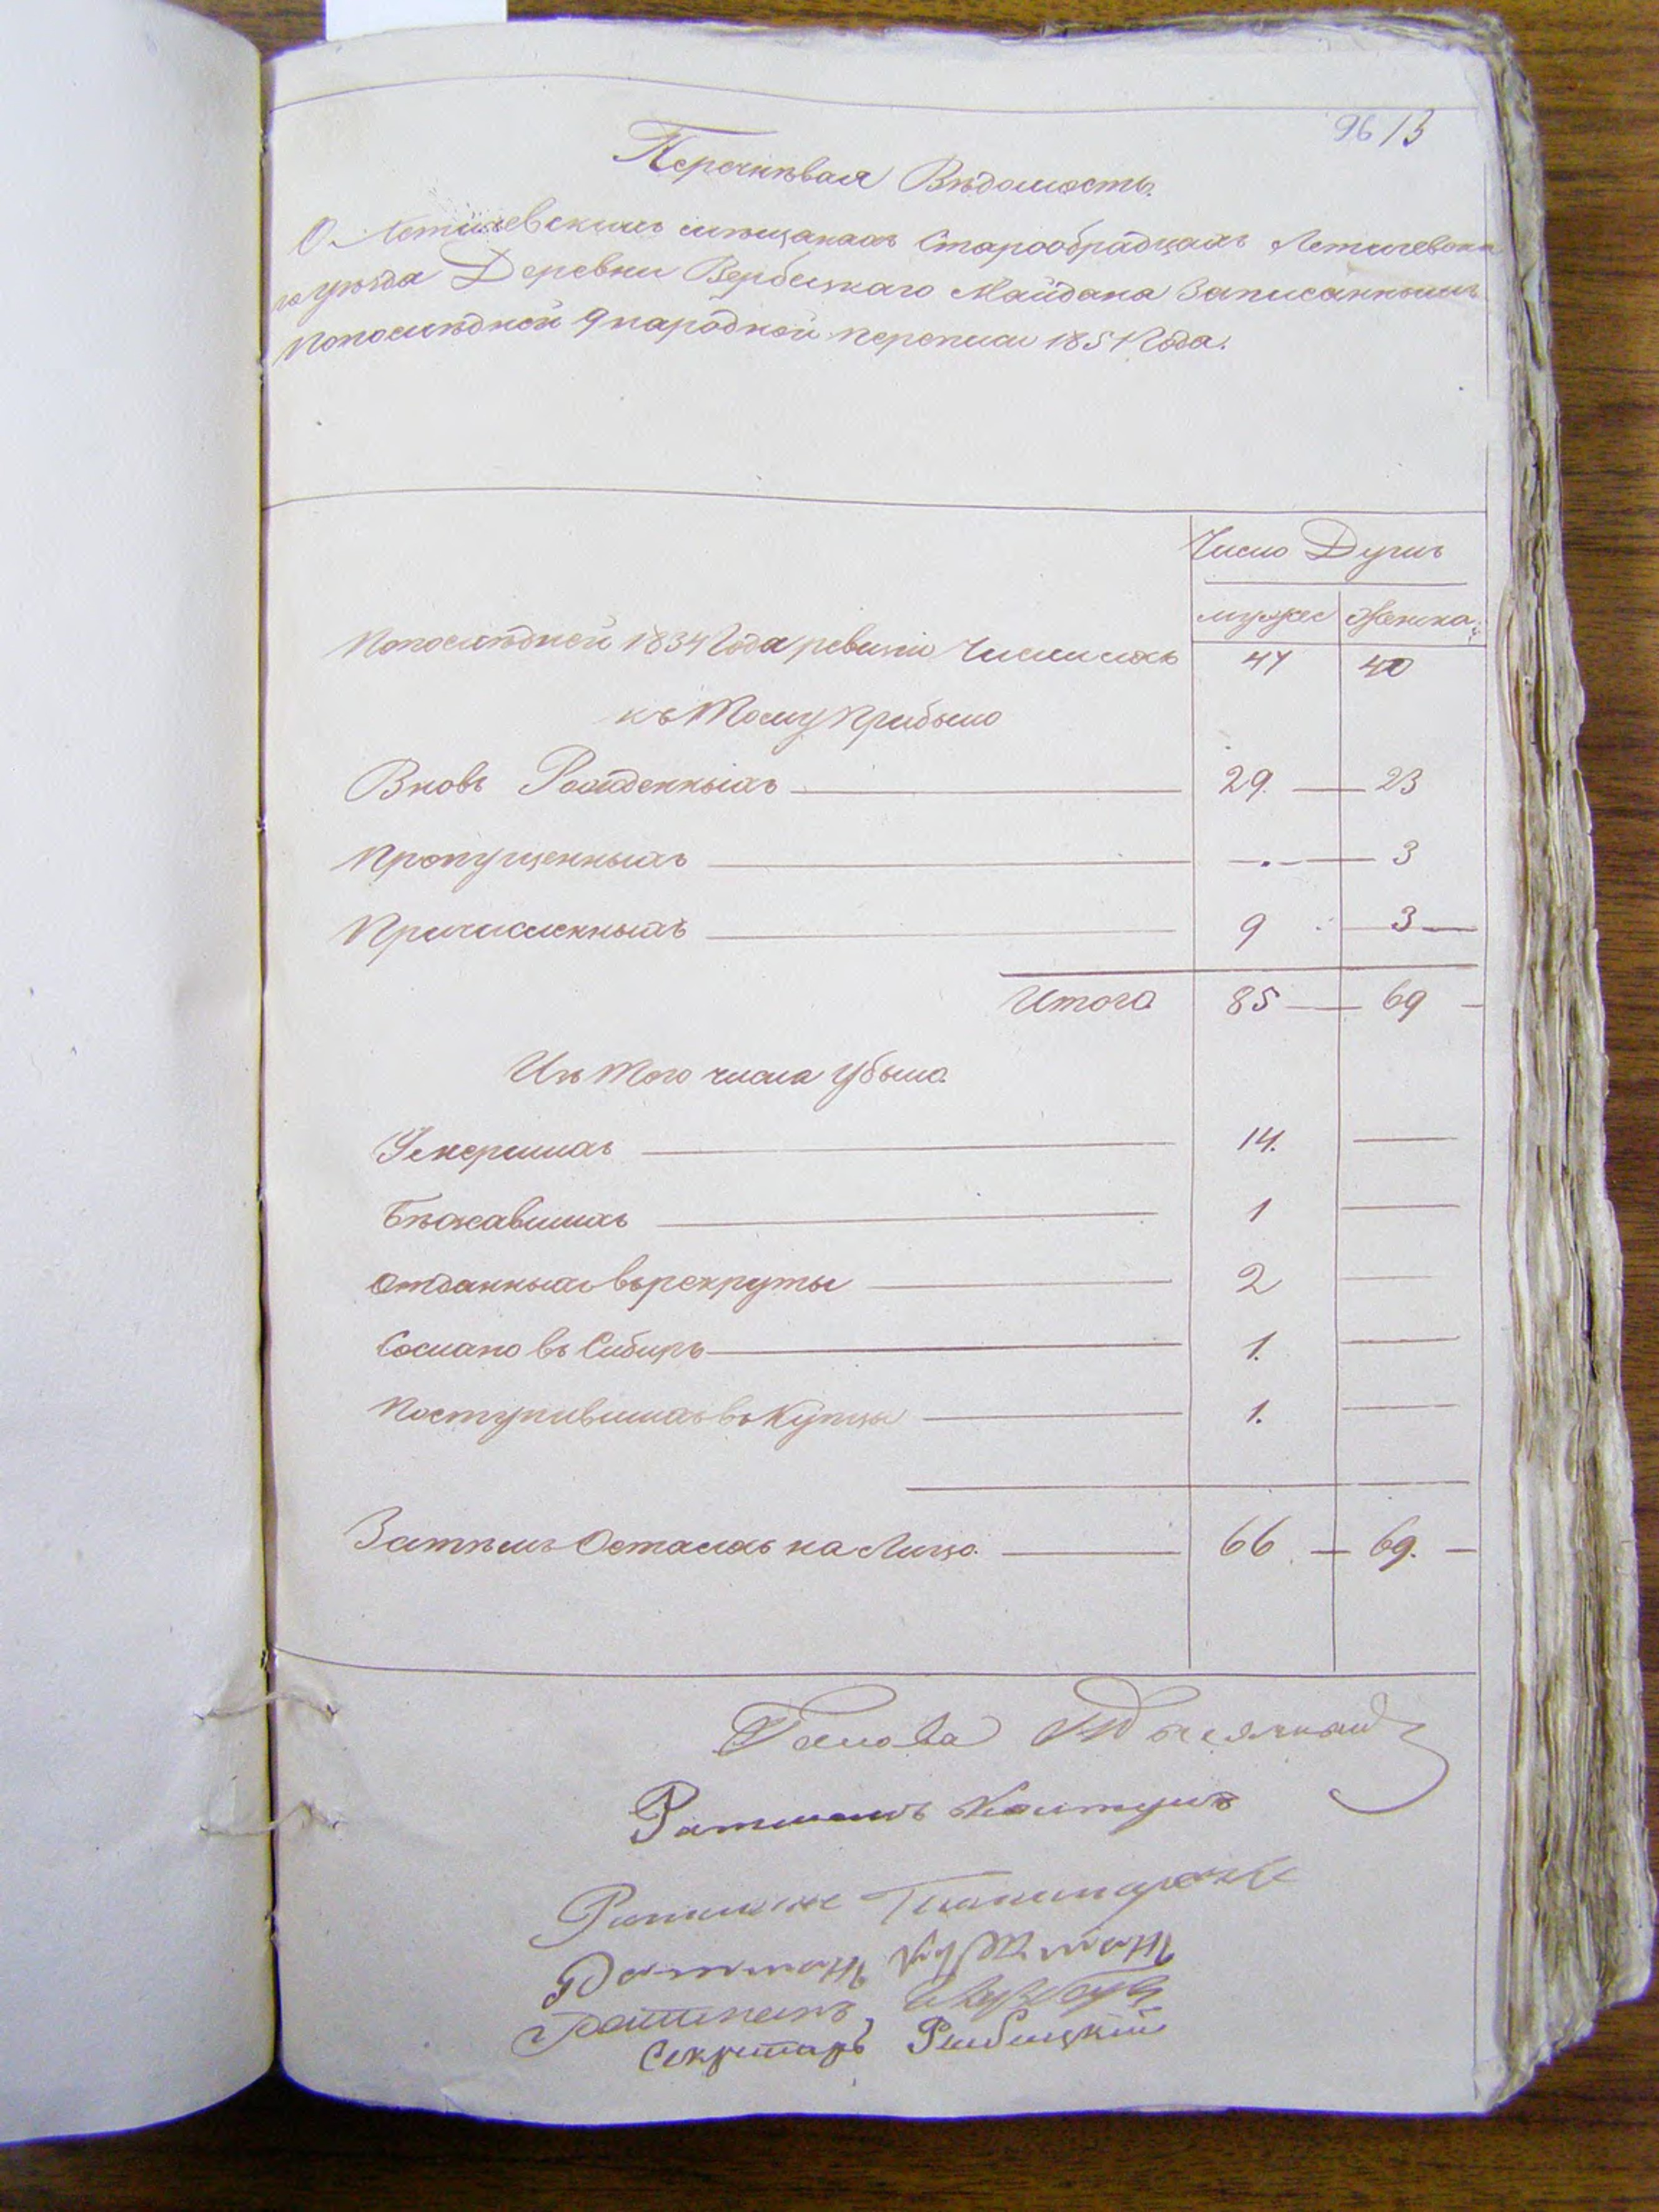 96 13
Перечнѣвая Вѣдомость.
О Летичевскихъ мѣщанахъ Старообрадцахъ Летичевска
го уѣзда Деревни Вербецкаго Майдана Записанныхъ
Попослѣдней 9 народной переписи 1851 Года.
Число Душъ
мужес Женска.
Попослѣдней 1834 Года ревизіи Числилось 47 40
къ Тому Прибыло
Вновь Рожденныхъ 29. 23
Пропущенныхъ 3
Причисленныхъ 9 3
Итого 85 69
Изъ Того числа Убыло.
Умершихъ 14.
Бѣжавшихъ 1
Отданныхъ въ рекруты 2
Сослано въ Сибирь 1.
Поступившихъ въ Купцы 1.
Затѣмъ Осталось на Лицо. 66 69.
Голова
Ратманъ Колтунъ
Ратманъ
Ратманъ
Ратманъ
Секретарь Рыбицкій